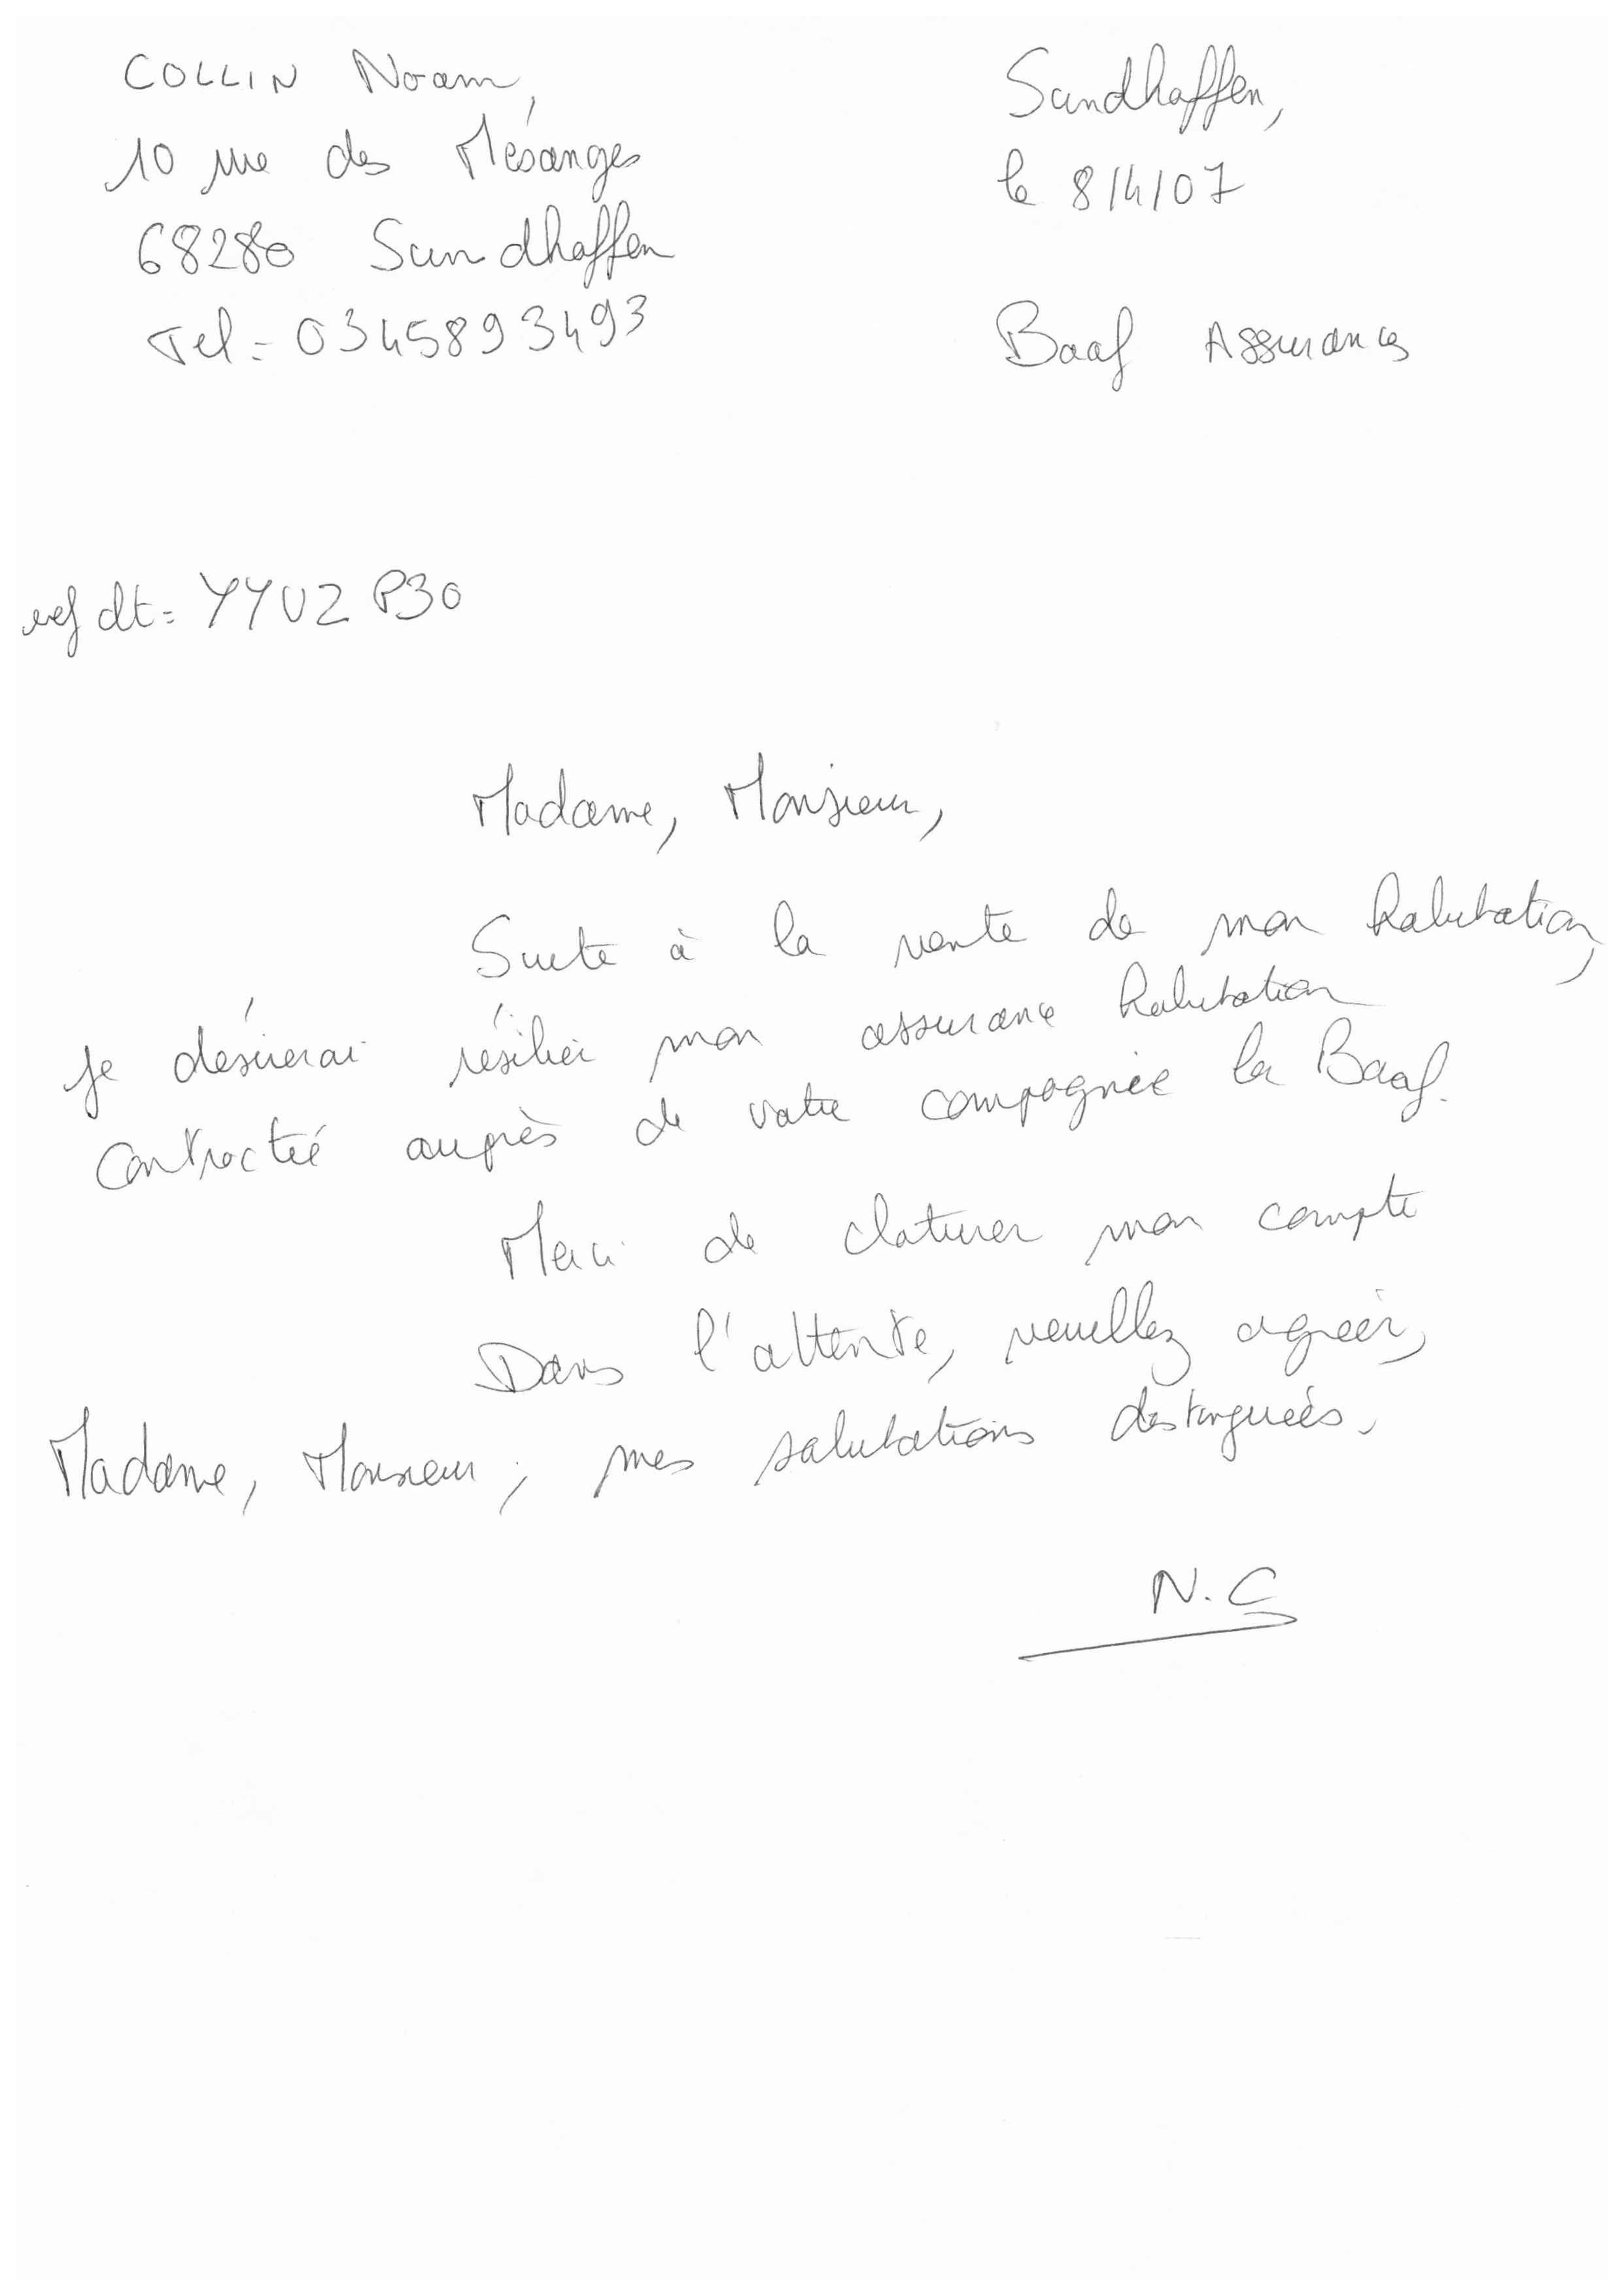 COLLIN Noam,
10 rue des Mésanges
68280 Sundhoffen
Tel = 0345893493
Sundhoffen,
le 8/4/07
Baaf Assurances
ref dt = YYUZ P30
Madame, Monsieur,
Suite à la vente de mon habitation,
je désirerai résilier mon assurance habitation
contractée auprès de votre compagnie la Baaf.
Merci de cloturer mon compte
Dans l'attente, veuillez agréer,
Madame, Monsieur, mes salutations distinguées.
N.C